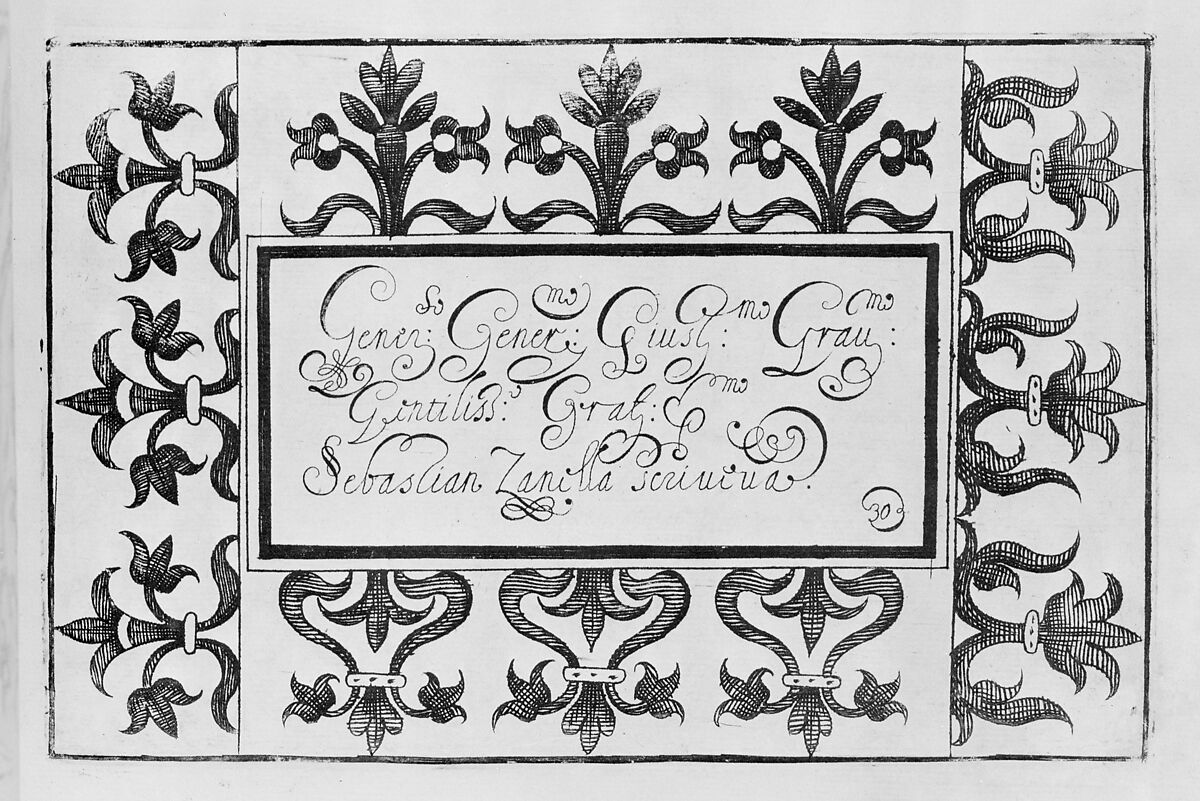 Gener:so Gener:mo Giust:mo Grau:mo
Gentiliss:o Grat:mo
Sebastian Zanella scriueua.
30